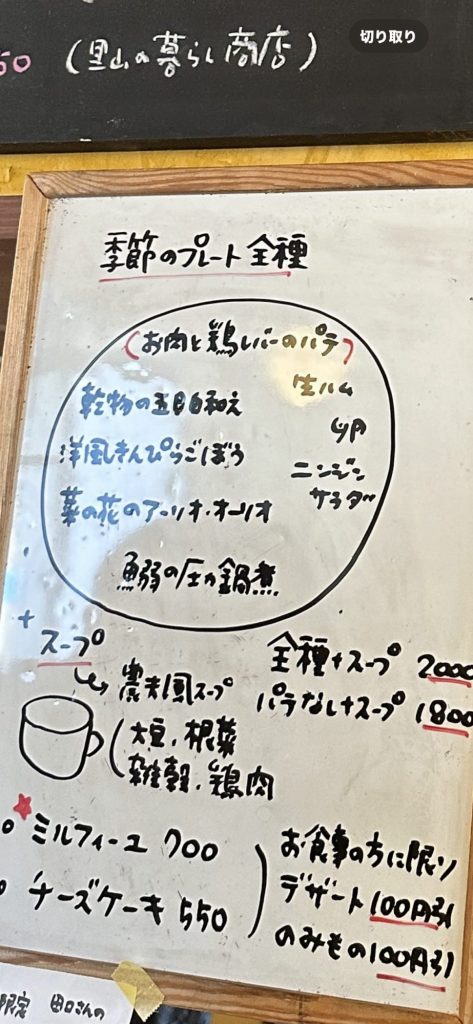 50 (里山の暮らし商店)
切り取り
季節のプレート全種
(お肉と鶏レバーのパテ)
生ハム
乾物の五目白和え
卵
洋風きんぴらごぼう
ニンジン
サラダ
菜の花のアーリオ・オーリオ
鰯の圧力鍋煮
+
スープ
農夫風スープ
大豆、根菜
雑穀、鶏肉
全種+スープ 2000
パテなし+スープ 1800
ミルフィーユ 700
チーズケーキ 550
お食事の方に限り
デザート100円引
のみもの100円引
限定 田口さんの